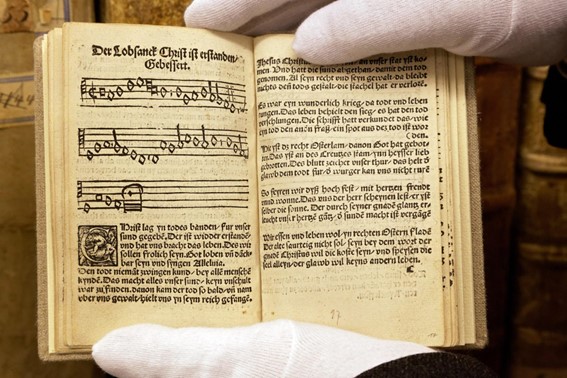 Der Lobsanck Christ ist erstanden/
Gebessert.
Christ lag yn todes banden/ fur unser
sund gegebē. Der ist widder erstandē/
und hat uns bracht das leben. Des wir
sollen frolich seyn. Got loben uñ danck
bar seyn und syngen Alleluia.
Den todt niemāt zwingen kund/ bey allē menschē
kyndē. Das macht alles unser sund/ keyn unschult
war zu finden. davon kam der tod so bald/ uñ nam
uber uns gewalt/ hielt uns yn seym reich gefangē.
Jhesus Christus an unser stat yst ko-
men. Und hatt die sund abgethan/ damit dem tod
genomen. Al seyn recht und seyn gewalt/ da bleibt
nichts den tods gestalt/ die stachel hat er verlorē.
Es war eyn wunderlich krieg/ da todt und leben
rungen. Das leben behielt den sieg/ es hat den tod
verschlungen. Die schrifft hatt verkundet das/ wie
eyn tod den andn fraß/ ein spot aus dez tod ist wor
(den.
Hie yst dz recht Osterlam/ davon Got hat gebot-
ten. Das yst an des Creutzes stam/ yn heysser lieb
gebrotten. Des blutt zeichet unser thur/ das helt d
glaub dem todt fur/ d wurger kan uns nicht rurē
So feyren wir dyß hoch fest/ mit hertzen freud
und wonne. Das uns der herr scheynen lest/ er yst
selber die sonne. Der durch seyner gnadē glantz er-
leucht unser hertzē gātz/ d sunde macht ist vergāgē
Wir essen und leben wol/ yn rechten Ostern fladē
Der alte saurteig nicht sol/ seyn bey dem wort der
gnadē Christus wil die koste seyn/ und speysen die
seel alleyn/ der glawb wil keyns andern leben.
27